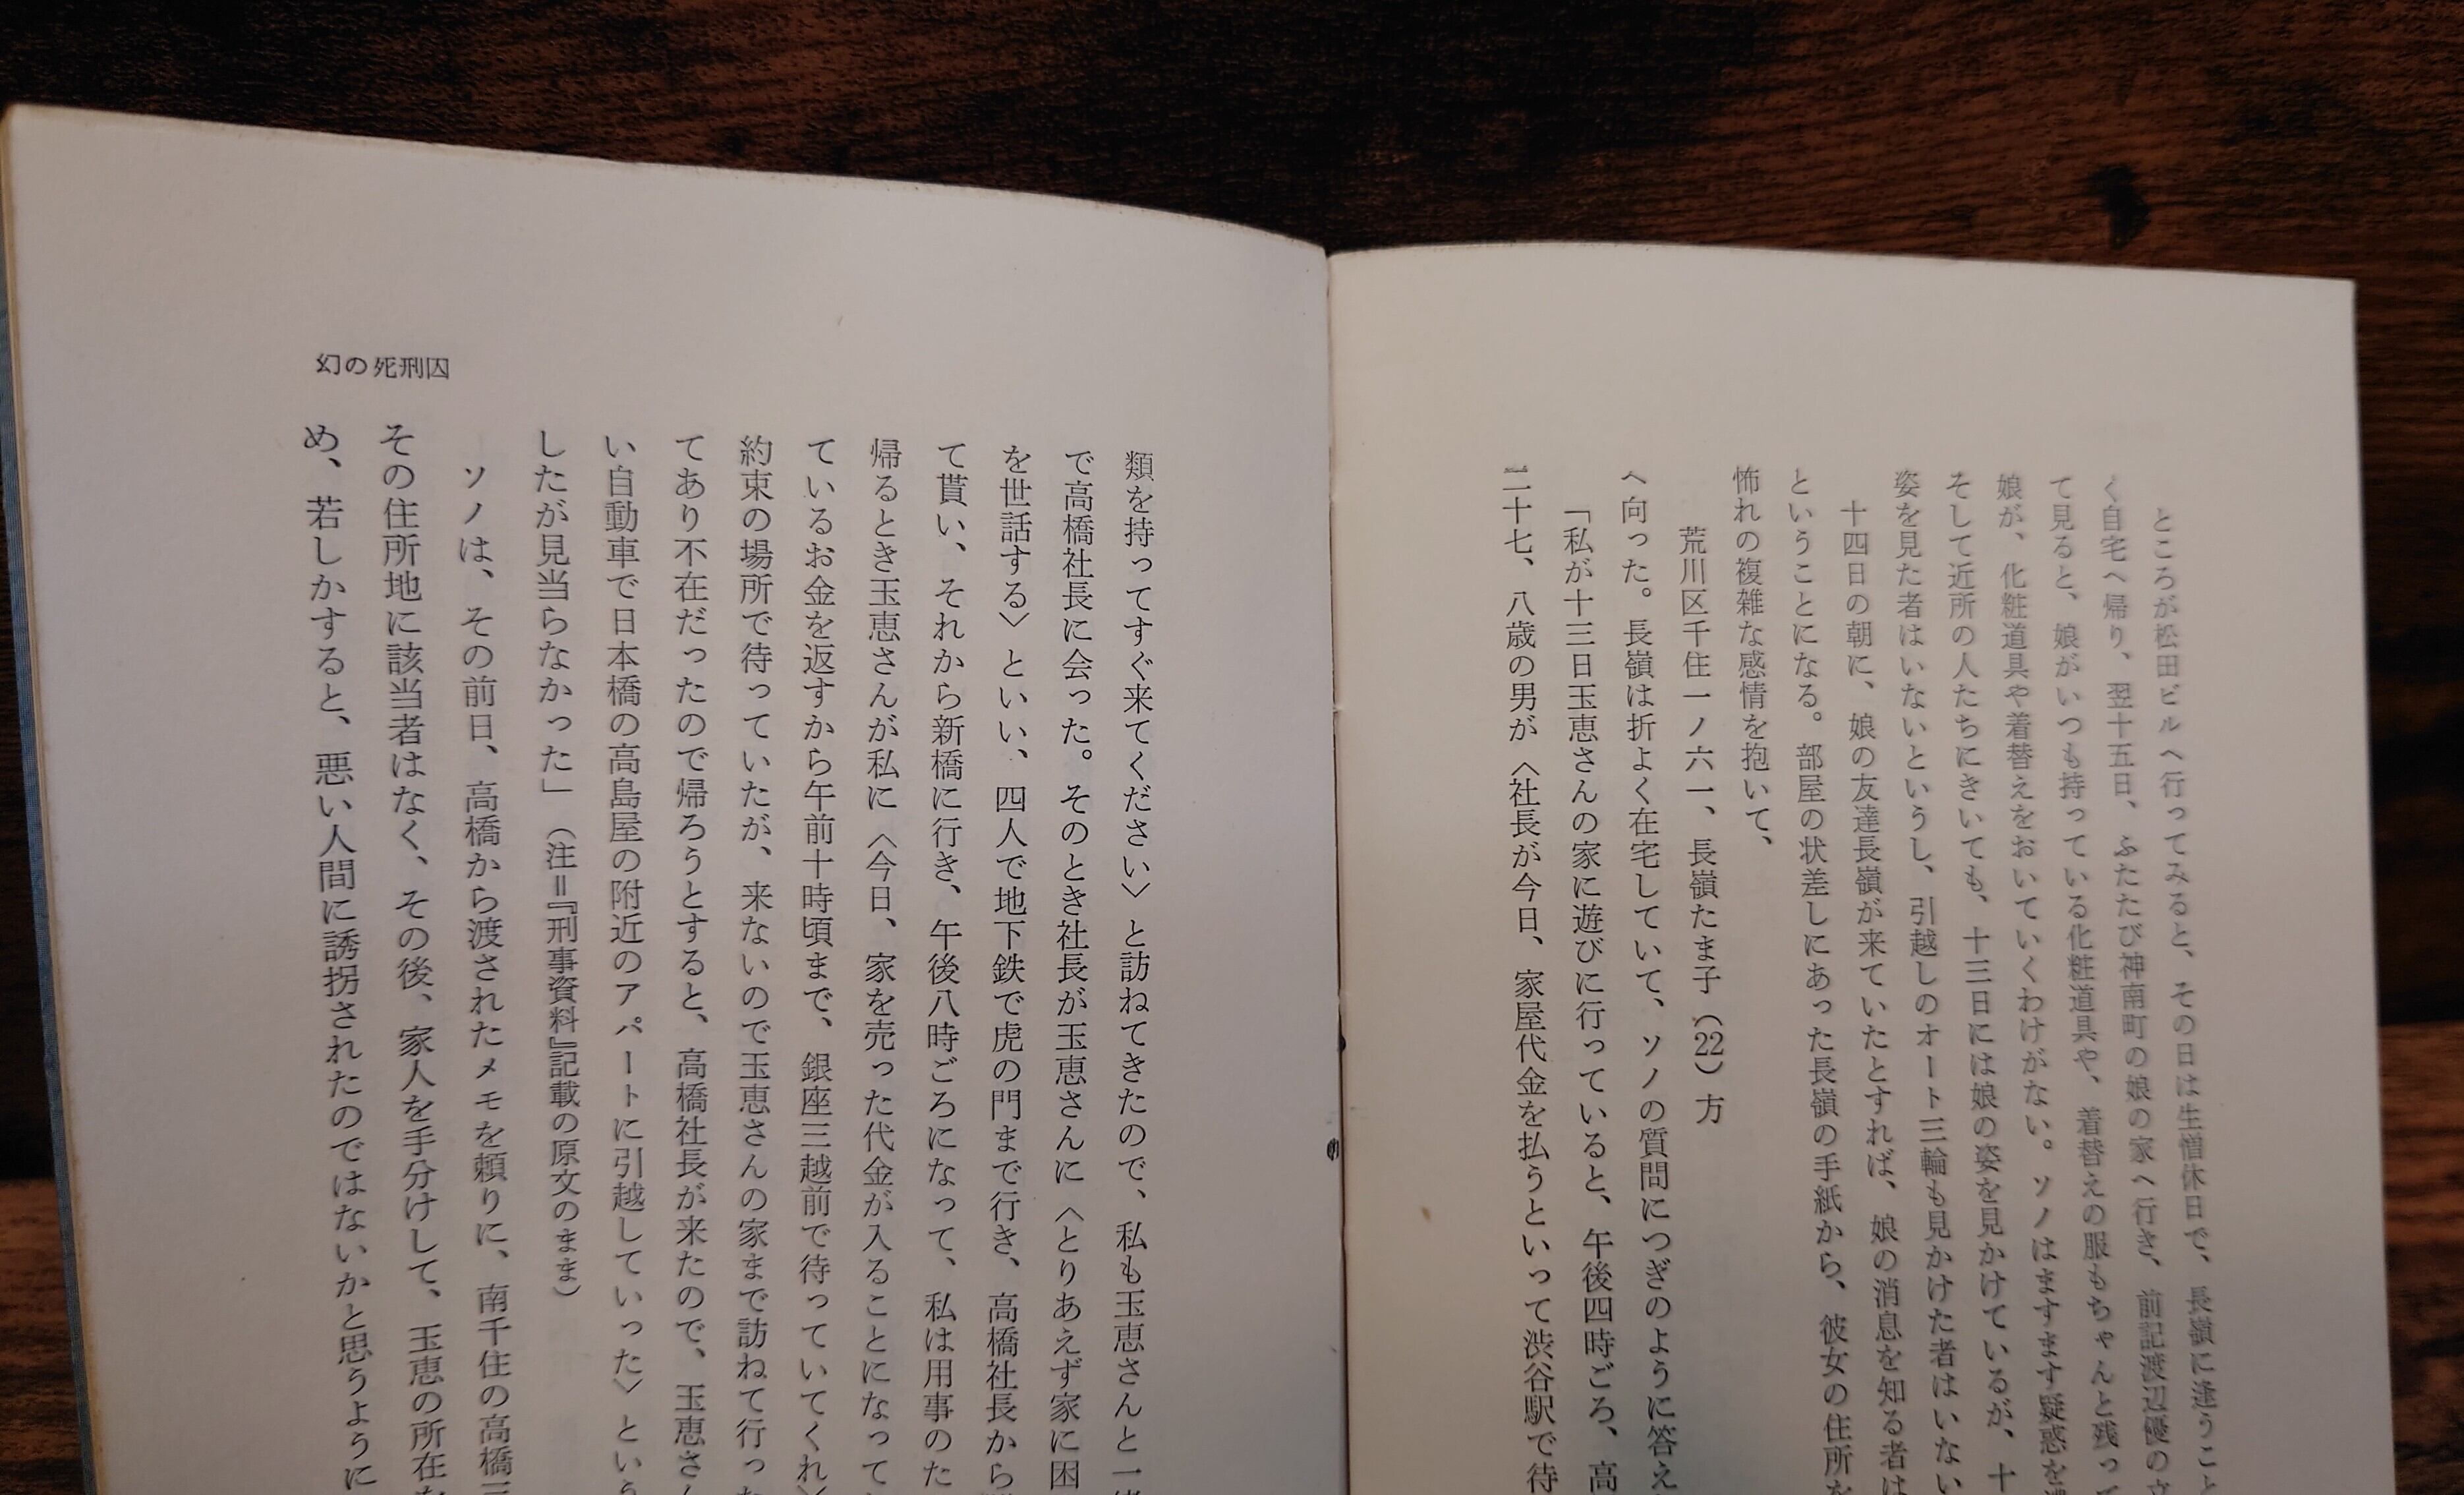 ところが松田ビルへ行ってみると、その日は生憎休日で、長嶺に逢うこと
く自宅へ帰り、翌十五日、ふたたび神南町の娘の家へ行き、前記渡辺優の立
て見ると、娘がいつも持っている化粧道具や、着替えの服もちゃんと残って
娘が、化粧道具や着替えをおいていくわけがない。ソノはますます疑惑を
そして近所の人たちにきいても、十三日には娘の姿を見かけているが、十
姿を見た者はいないというし、引越しのオート三輪も見かけた者はいない
十四日の朝に、娘の友達長嶺が来ていたとすれば、娘の消息を知る者は
ということになる。部屋の状差しにあった長嶺の手紙から、彼女の住所を
怖れの複雑な感情を抱いて、
荒川区千住一ノ六一、長嶺たま子（22）方
へ向った。長嶺は折よく在宅していて、ソノの質問につぎのように答え
「私が十三日玉恵さんの家に遊びに行っていると、午後四時ごろ、高
二十七、八歳の男が〈社長が今日、家屋代金を払うといって渋谷駅で待
類を持ってすぐ来てください〉と訪ねてきたので、私も玉恵さんと一緒
で高橋社長に会った。そのとき社長が玉恵さんに〈とりあえず家に困
を世話する〉といい、四人で地下鉄で虎の門まで行き、高橋社長から
て貰い、それから新橋に行き、午後八時ごろになって、私は用事のた
帰るとき玉恵さんが私に〈今日、家を売った代金が入ることになって
ているお金を返すから午前十時頃まで、銀座三越前で待っていてくれ〉
約束の場所で待っていたが、来ないので玉恵さんの家まで訪ねて行った
てあり不在だったので帰ろうとすると、高橋社長が来たので、玉恵さん
い自動車で日本橋の高島屋の附近のアパートに引越していった〉という
したが見当らなかった」（注＝『刑事資料』記載の原文のまま）
ソノは、その前日、高橋から渡されたメモを頼りに、南千住の高橋三
その住所地に該当者はなく、その後、家人を手分けして、玉恵の所在を
め、若しかすると、悪い人間に誘拐されたのではないかと思うように
幻の死刑囚